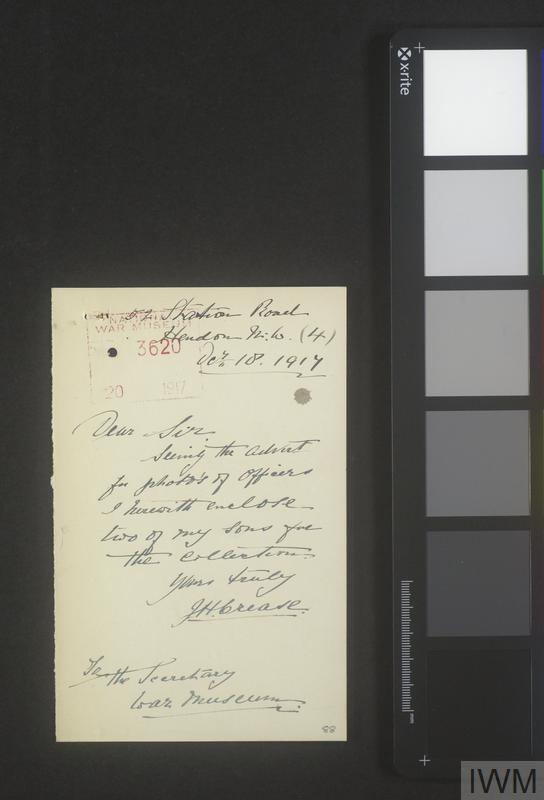 Station Road
Hendon N.W. (4)
Oct 18. 1917
NATIONAL
WAR MUSEUM
3620
20 1917
Dear Sir
Seeing the advert
for photo's of Officers
I herewith enclose
two of my sons for
the collection.
Yours truly
J.H. Crease.
To the Secretary
War Museum.
88
x-rite
mm
IWM